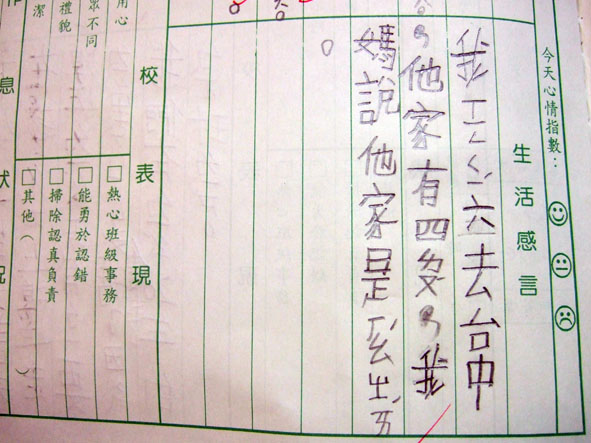 今天心情指數：
生活感言
我 六去台中
，他家有四 ，我
媽說他家是
。
校表現
用心
不同
禮貌
潔
□熱心班級事務
□能勇於認錯
□掃除認真負責
□其他（ ）
息狀況